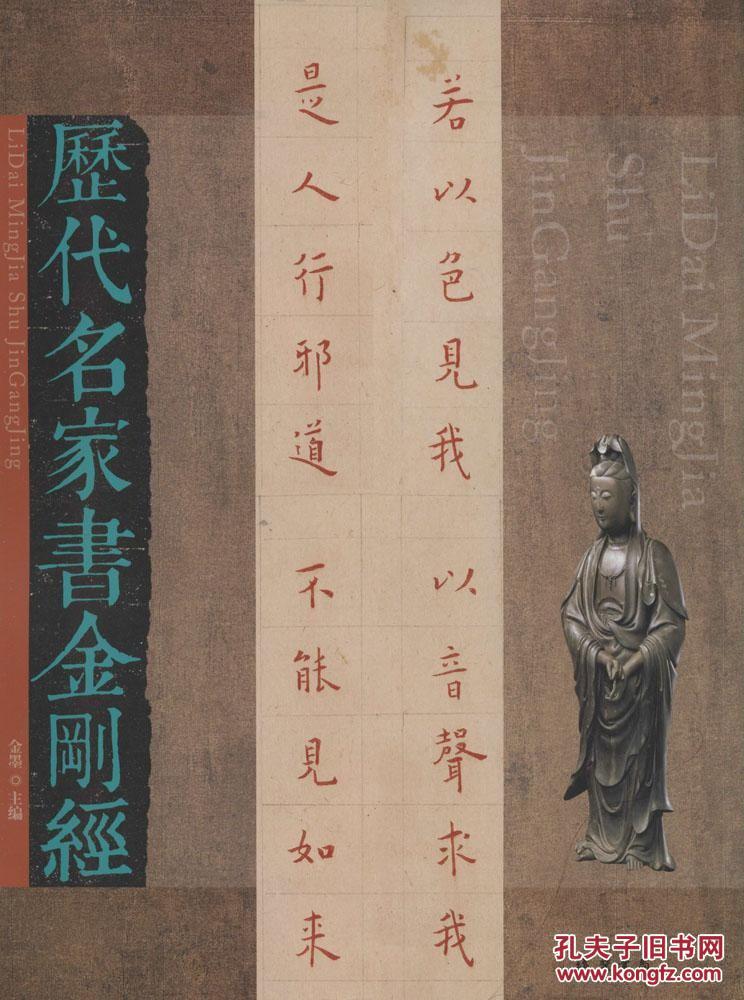 歷代名家書金剛經
LiDai MingJia Shu JinGangJing
金墨○主编
若以色見我 以音聲求我
是人行邪道 不能見如来
LiDai MingJia
Shu
JinGangJing
孔夫子旧书网
www.kongfz.com